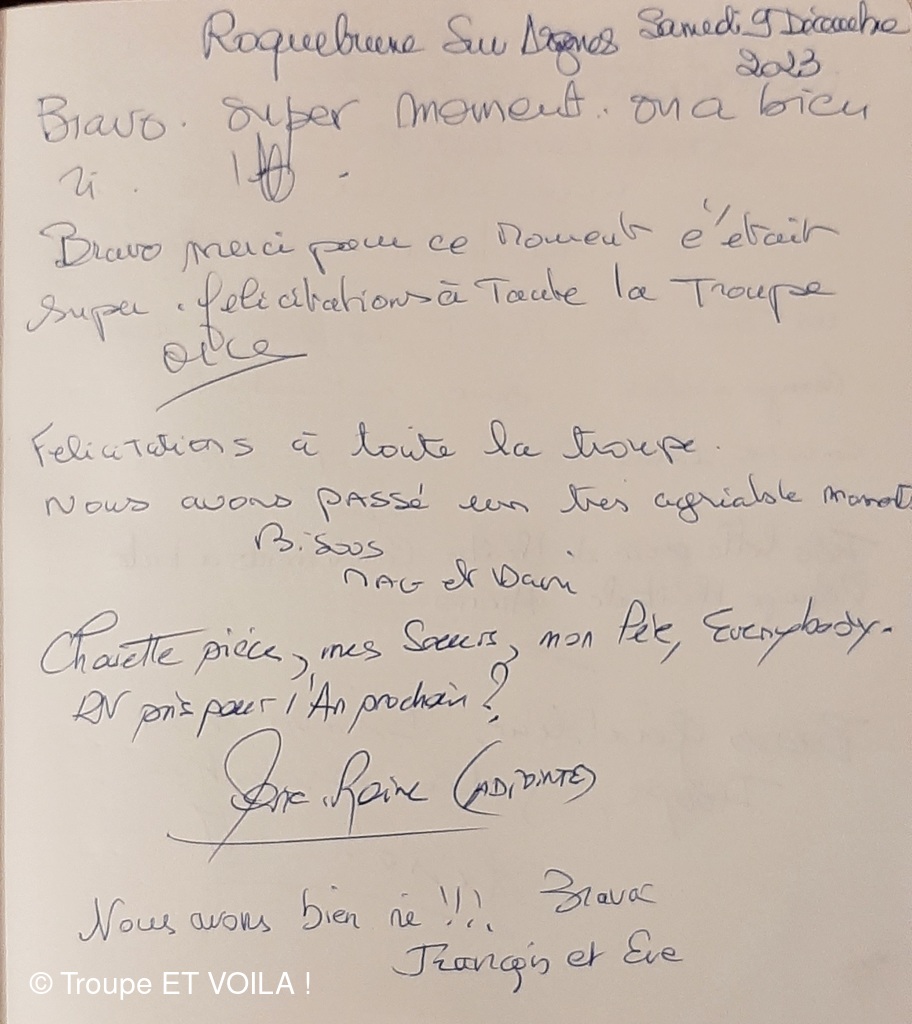 Roquebrune Sur Argens Samedi 9 Décembre
2023
Bravo. Super moment. on a bien
ri.
Bravo merci pour ce moment c'etait
super. felicitations à Toute la Troupe
Felicitations à toute la troupe.
Nous avons PASSÉ un très agréable moment.
Bisous
MAG et Dani
Chouette pièce, mes Soeurs, mon Père, Everybody.
RV pris pour l'An prochain ?
(ADJOINTE)
Nous avons bien ri !!! Bravo
François et Eve
© Troupe ET VOILA !